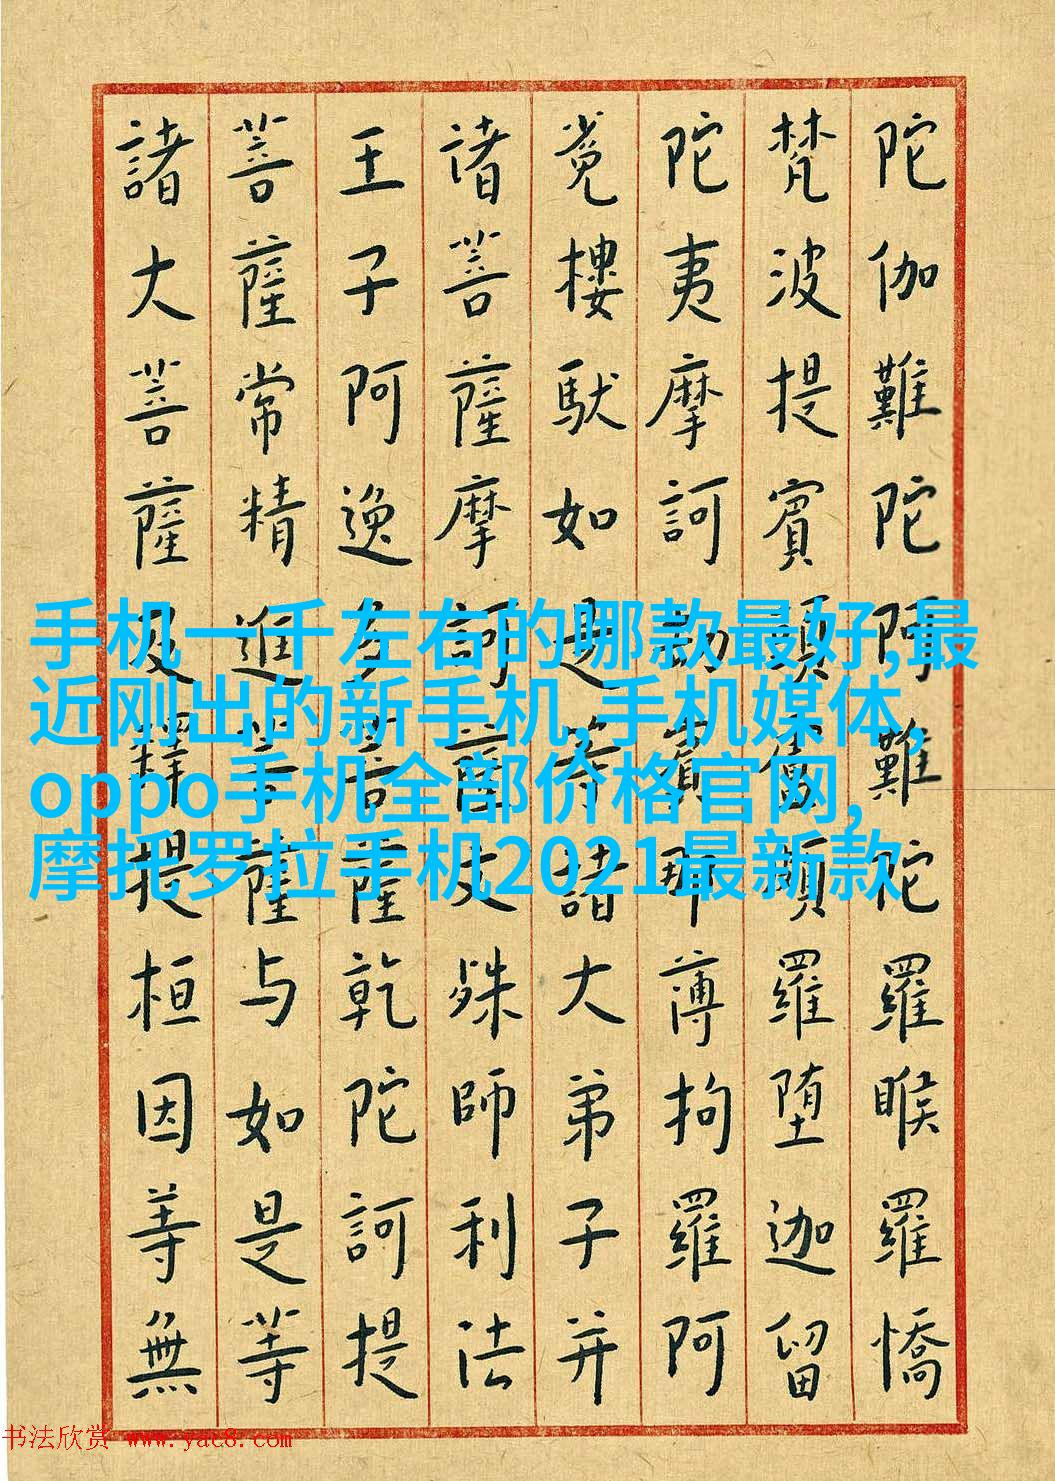 陀伽難陀阿難陀羅睺羅憍
梵波提賓頭盧頗羅堕迦留
陀夷摩訶劫賓那薄拘羅阿
樓馱如是等諸大弟子并
诸菩薩摩訶薩文殊師利法
王子阿逸多菩薩乾陀訶提
菩薩常精進菩薩与如是等
諸大菩薩及釋提桓因等無
手机一千左右的哪款最好,最
近刚出的新手机,手机媒体,
oppo手机全部价格官网,
摩托罗拉手机2021最新款
书法欣赏 www.yac8.com